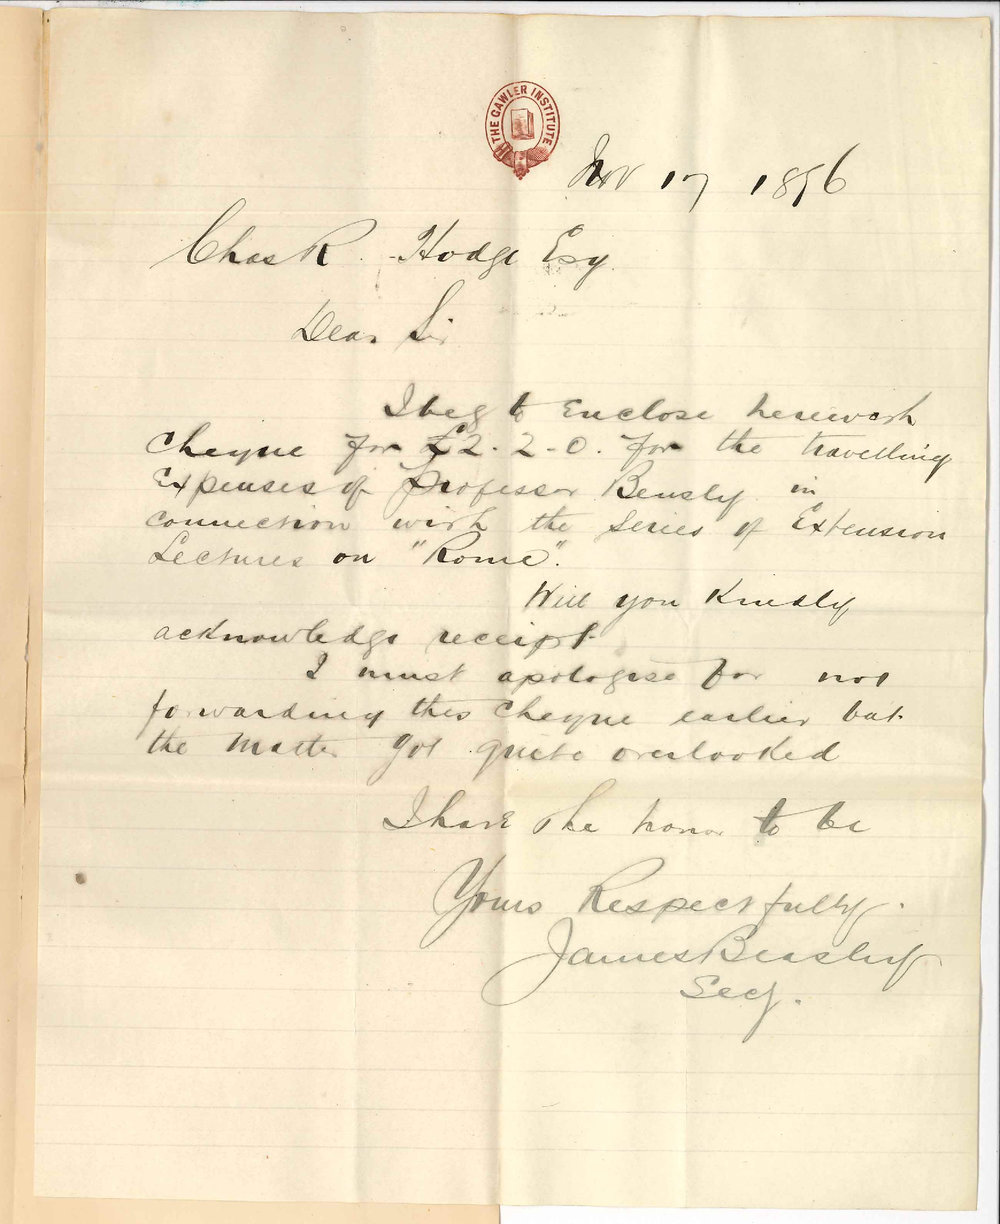 THE GAWLER INSTITUTE
Nov 17 1896
Chas R. Hodge Esq
Dear Sir
I beg to enclose herewith
cheque for £2-2-0. for the travelling
Expenses of Professor Bensly in
connection with the series of Extension
Lectures on "Rome".
Will you Kindly
acknowledge receipt
I must apologise for not
forwarding this cheque earlier but
the matter got quite overlooked
I have the honor to be
Yours Respectfully.
James Beasley
Secy.